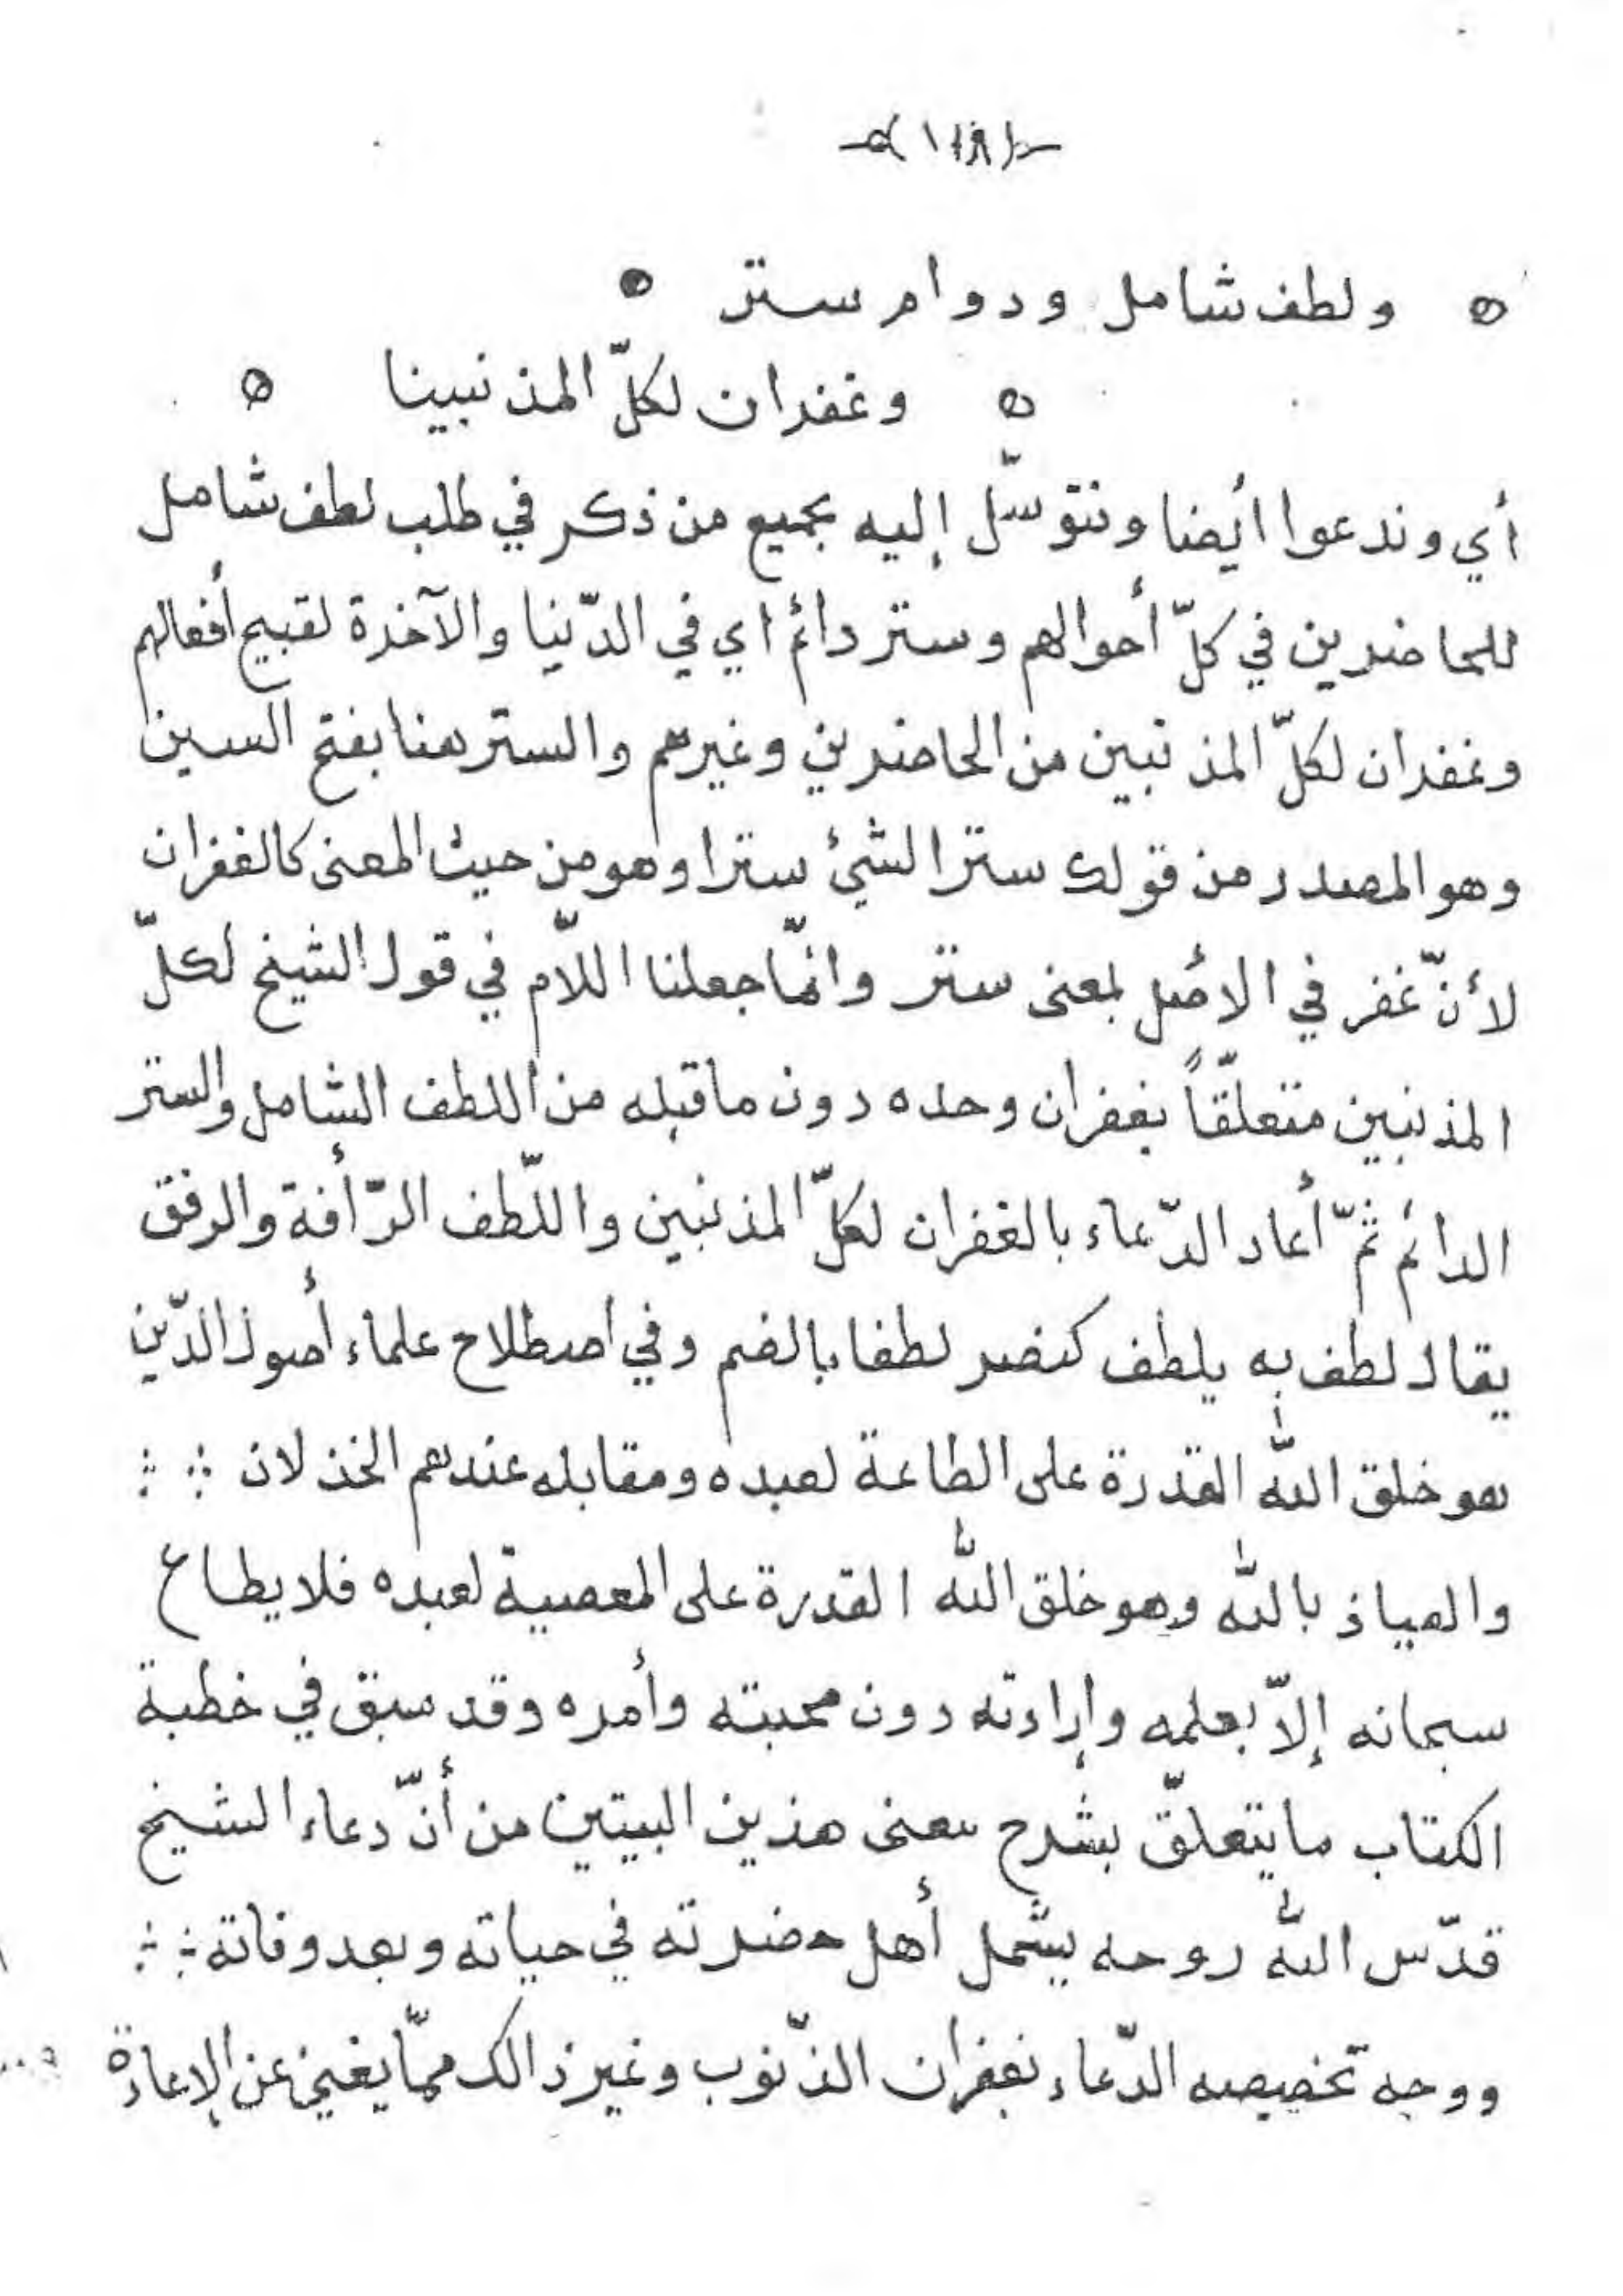 ولطف شامل ودوام ستر
وغفران لكلّ المذنبينا
أي وندعوا أيضا ونتوسّل إليه بجميع من ذكر في طلب لطف شامل
للحاضرين في كلّ أحوالهم وستر دائم اي في الدّنيا والآخرة لقبيح أفعالهم
وغفران لكلّ المذنبين من الحاضرين وغيرهم والستر هنا بفتح السين
وهو المصدر من قولك ستر الشيئ سترا وهو من حيث المعنى كالغفران
لأنّ غفر في الأصل بمعنى ستر وانّما جعلنا اللاّم في قول الشيخ لكلّ
المذنبين متعلّقاً بغفران وحده دون ما قبله من اللطف الشامل والستر
الدائم ثمّ أعاد الدّعاء بالغفران لكلّ المذنبين واللّطف الرّأفة والرفق
يقال لطف به يلطف كنصر لطفا بالضم وفي اصطلاح علماء أصول الدّين
هو خلق الله القدرة على الطاعة لعبده ومقابله عندهم الخذلان
والعياذ بالله وهو خلق الله القدرة على المعصية لعبده فلا يطاع
سبحانه إلاّ بعلمه وإراءته دون محبته وأمره وقد سبق في خطبة
الكتاب ما يتعلّق بشرح معنى هذين البيتين من أنّ دعاء الشيخ
قدّس الله روحه يشمل أهل حضرته في حياته وبعد وفاته
ووجه تخصيصه الدّعاء بغفران الذّنوب وغير ذالك ممّا يغني عن الإعادة